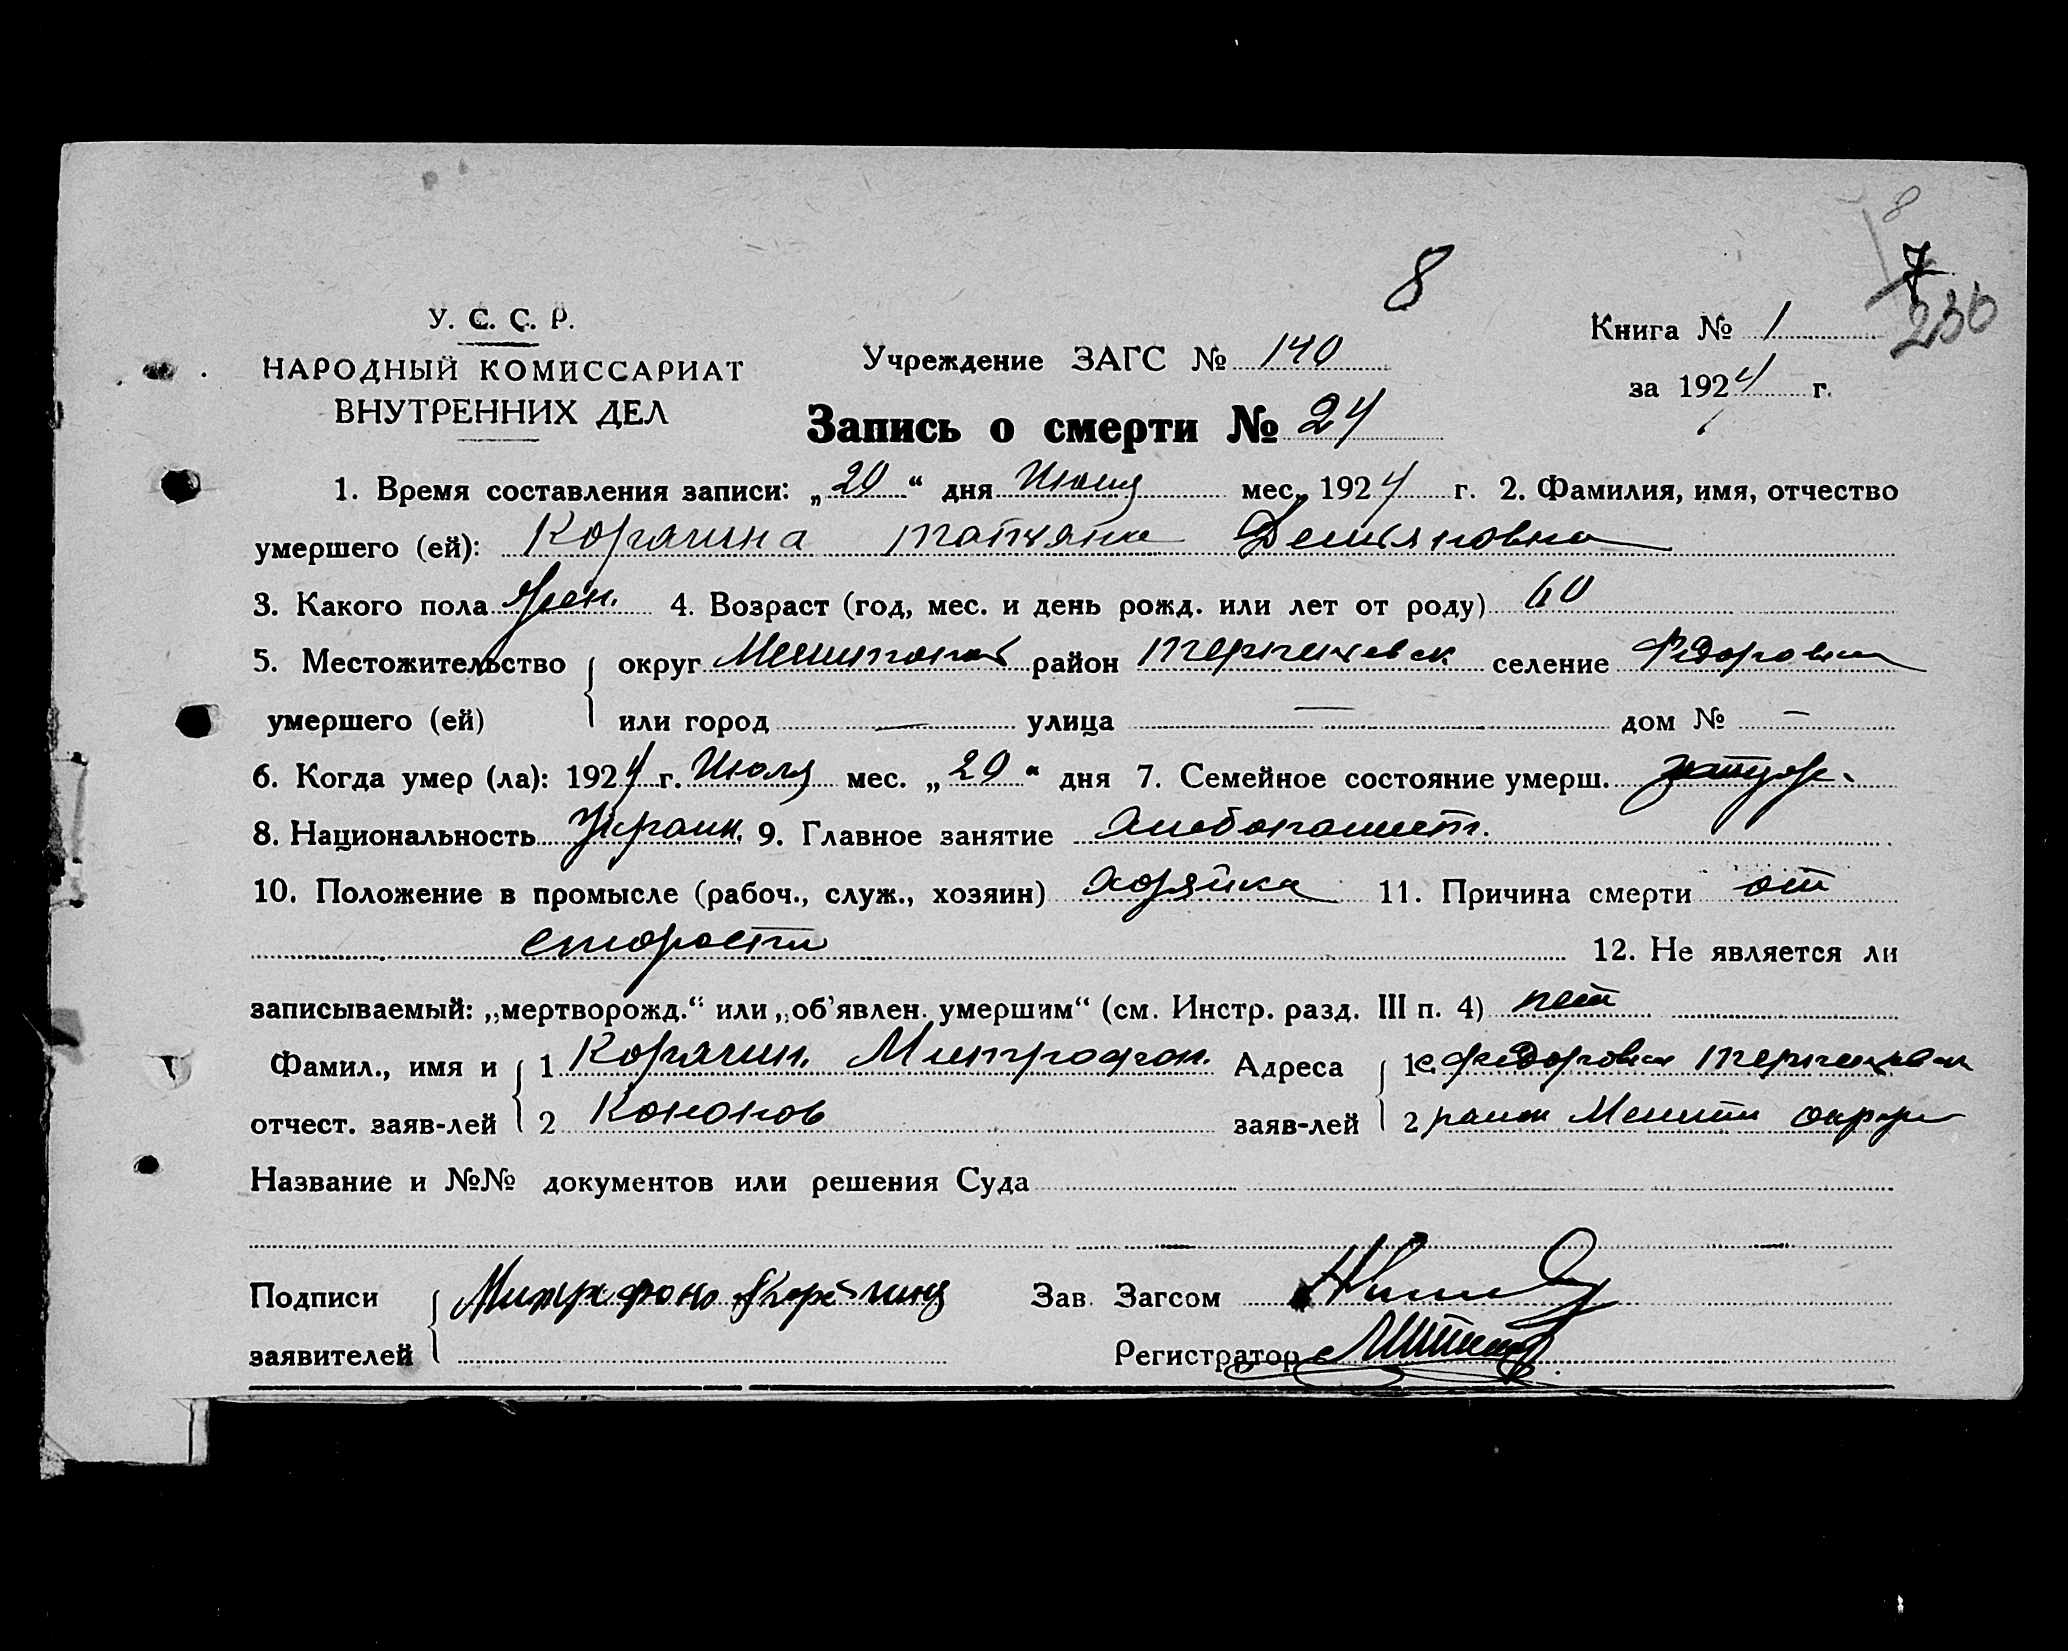 8
8
7
236
У. С. С. Р.
НАРОДНЫЙ КОМИССАРИАТ
ВНУТРЕННИХ ДЕЛ
Учреждение ЗАГС № 140
Книга № 1
за 1924 г.
Запись о смерти № 24
1. Время составления записи: „20“ дня Июля мес. 1924 г. 2. Фамилия, имя, отчество
умершего (ей): Корягина Татьяна Демьяновна
3. Какого пола жен. 4. Возраст (год, мес. и день рожд. или лет от роду) 60
5. Местожительство округ Мелитопол район Терпеневск селение Федоровка
умершего (ей) или город — улица — дом № —
6. Когда умер (ла): 1924 г. Июля мес. „20“ дня 7. Семейное состояние умерш. замуж.
8. Национальность Украин. 9. Главное занятие Хлебопашест.
10. Положение в промысле (рабоч., служ., хозяин) хозяйка 11. Причина смерти от
старости 12. Не является ли
записываемый: „мертворожд.“ или „об’явлен. умершим“ (см. Инстр. разд. III п. 4) нет
Фамил., имя и 1 Корягин. Митрофон. Адреса 1 с. Федоровка
отчест. заяв-лей 2 Кононов заяв-лей 2 Мелит округу
Название и №№ документов или решения Суда
Подписи Зав. Загсом
заявителей Регистратор